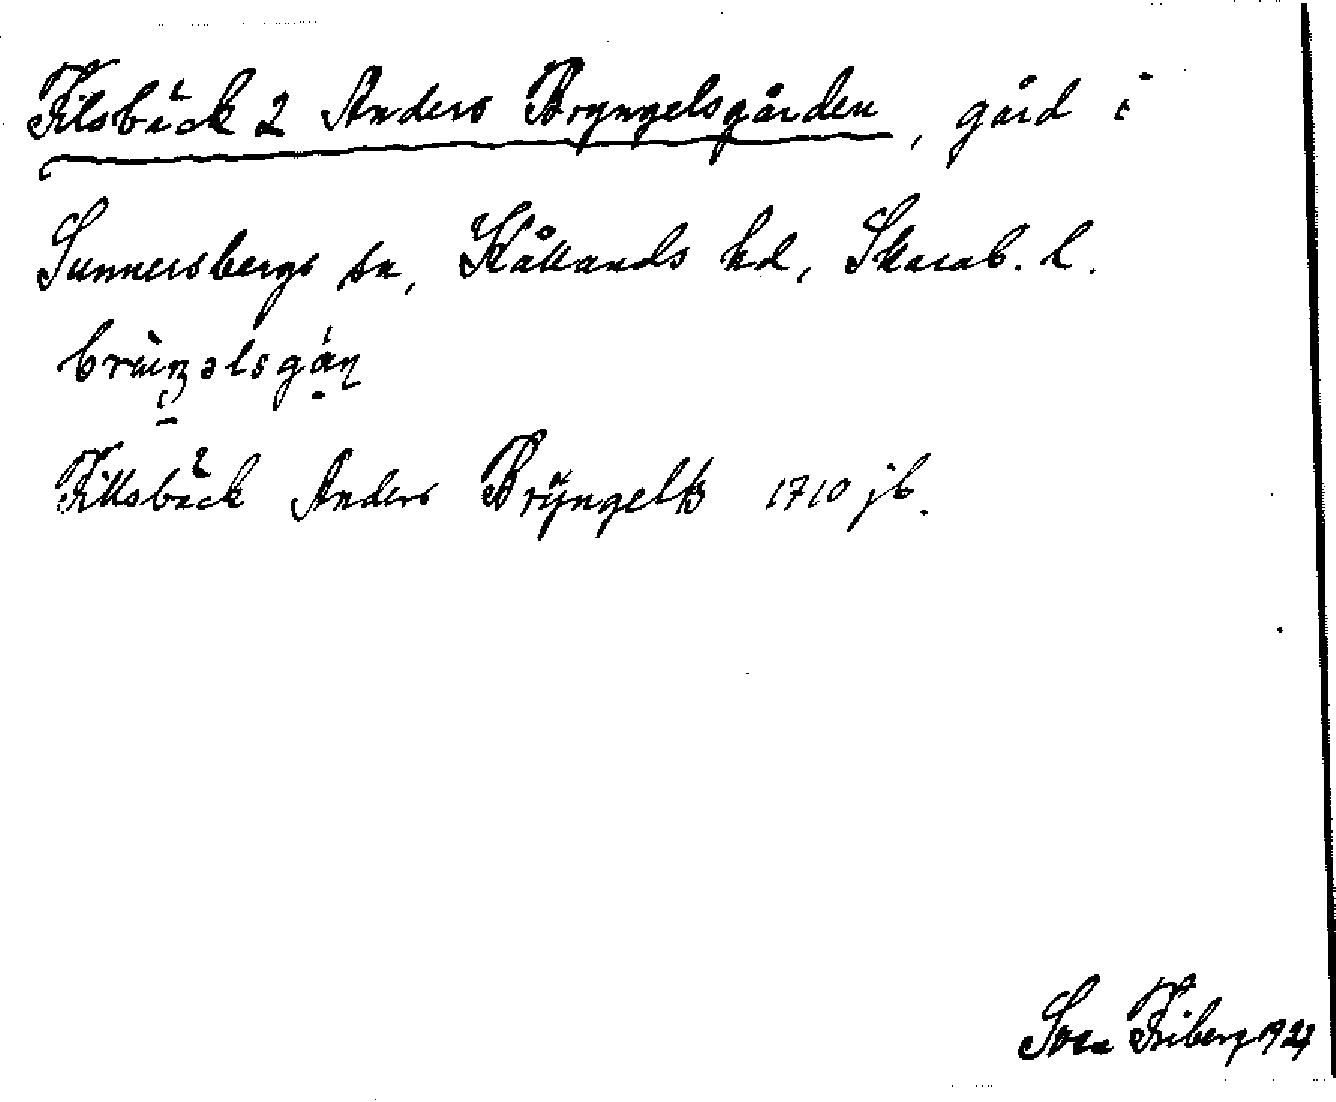 Filsbäck 2 Anders Bryngelsgården, gård i
Sunnersbergs sn, Kållands hd, Skarab. l.
Fillsbäck Anders Brÿngeltz 1710 jb.
Sven Friberg